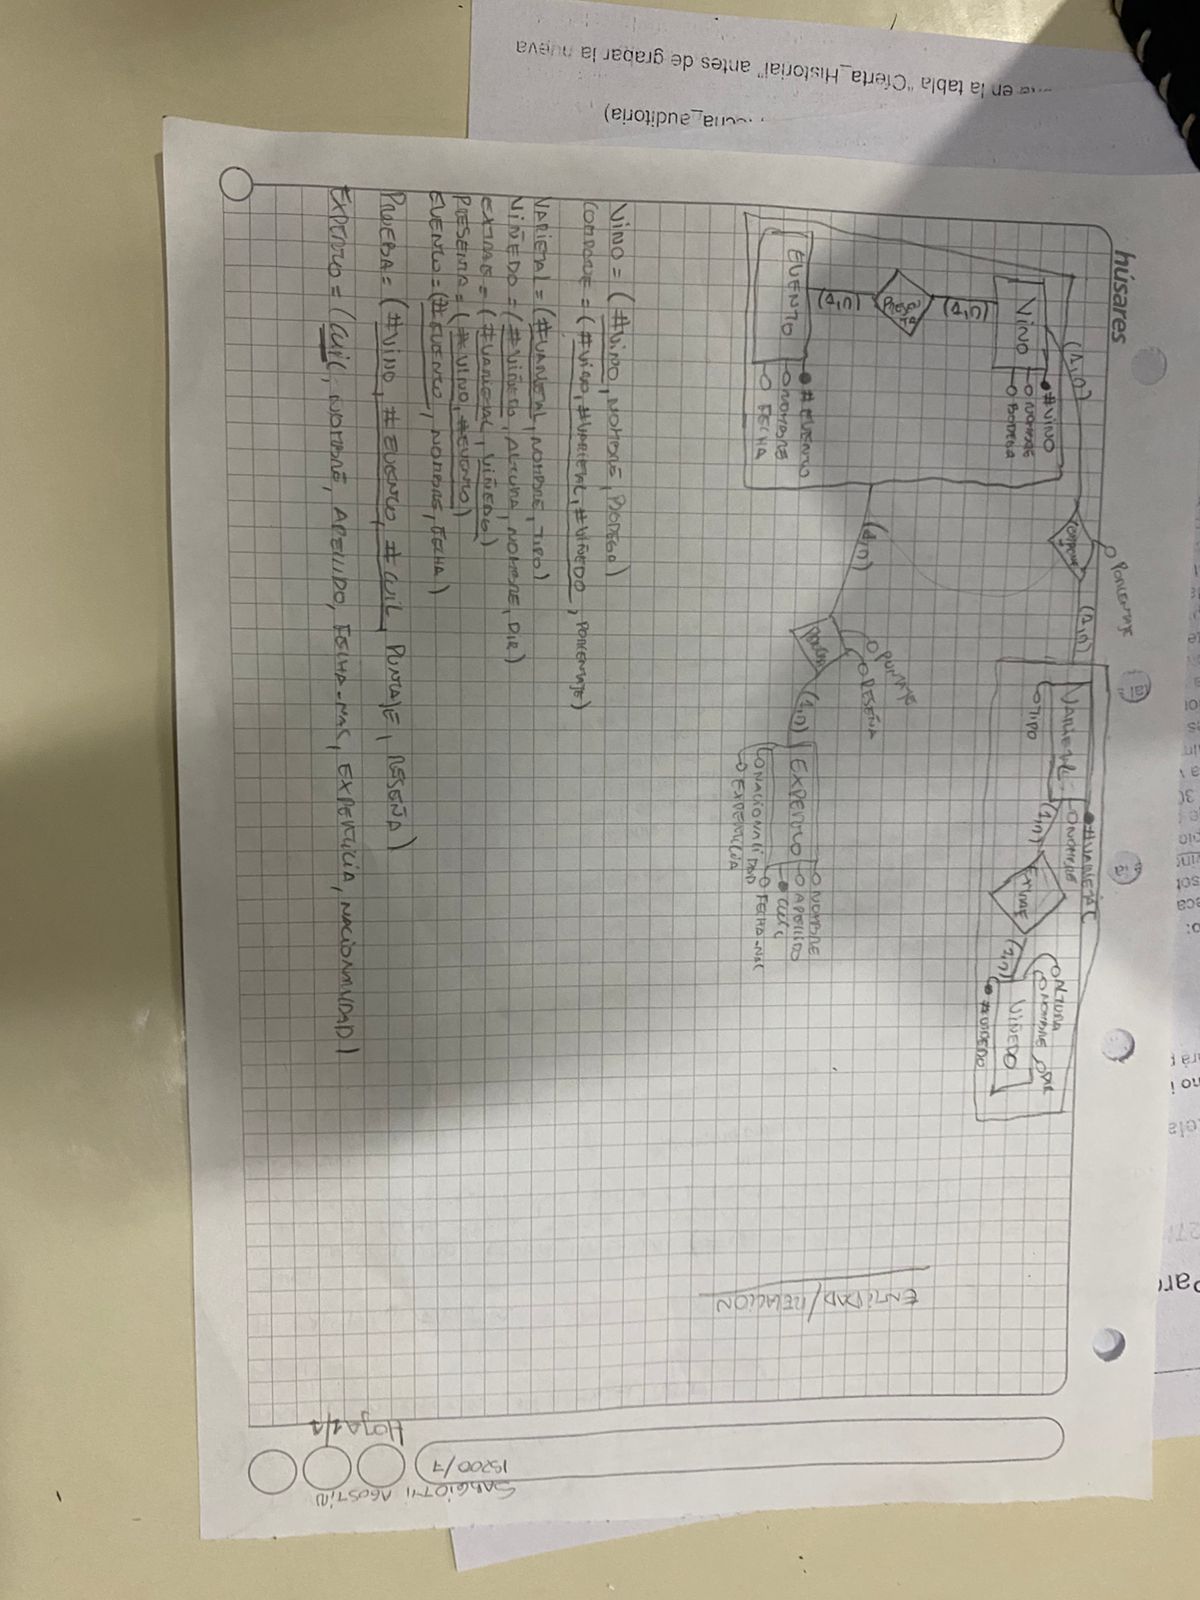 húsares
PORCENTAJE
(1,n)
COMPONE
(1,n)
VARIETAL
#VARIETAL
NOMBRE
TIPO
(1,n)
EXTRAE
(1,n)
ALTURA
NOMBRE
DIR
VIÑEDO
#VIÑEDO
VINO
#VINO
NOMBRE
BODEGA
(1,n)
PRESENTA
(1,n)
EVENTO
#EVENTO
NOMBRE
FECHA
(1,n)
PUNTAJE
RESEÑA
PRUEBA
(1,n)
EXPERTO
NOMBRE
APELLIDO
CUIL
FECHA-NAC
NACIONALIDAD
EXPERTICIA
ENTIDAD/RELACION
VINO = (#VINO, NOMBRE, BODEGA)
COMPONE = (#VINO, #VARIETAL, #VIÑEDO, PORCENTAJE)
VARIETAL = (#VARIETAL, NOMBRE, TIPO)
VIÑEDO = (#VIÑEDO, ALTURA, NOMBRE, DIR)
EXTRAE = (#VARIETAL, VIÑEDO)
PRESENTA = (#VINO, #EVENTO)
EVENTO = (#EVENTO, NOMBRE, FECHA)
PRUEBA = (#VINO, #EVENTO, #CUIL, PUNTAJE, RESEÑA)
EXPERTO = (CUIL, NOMBRE, APELLIDO, FECHA-NAC, EXPERTICIA, NACIONALIDAD)
SARGIOTTI AGOSTIN
15200/7
HOJA 1/1
en la tabla "Oferta_Historial" antes de grabar la nueva
_auditoria)